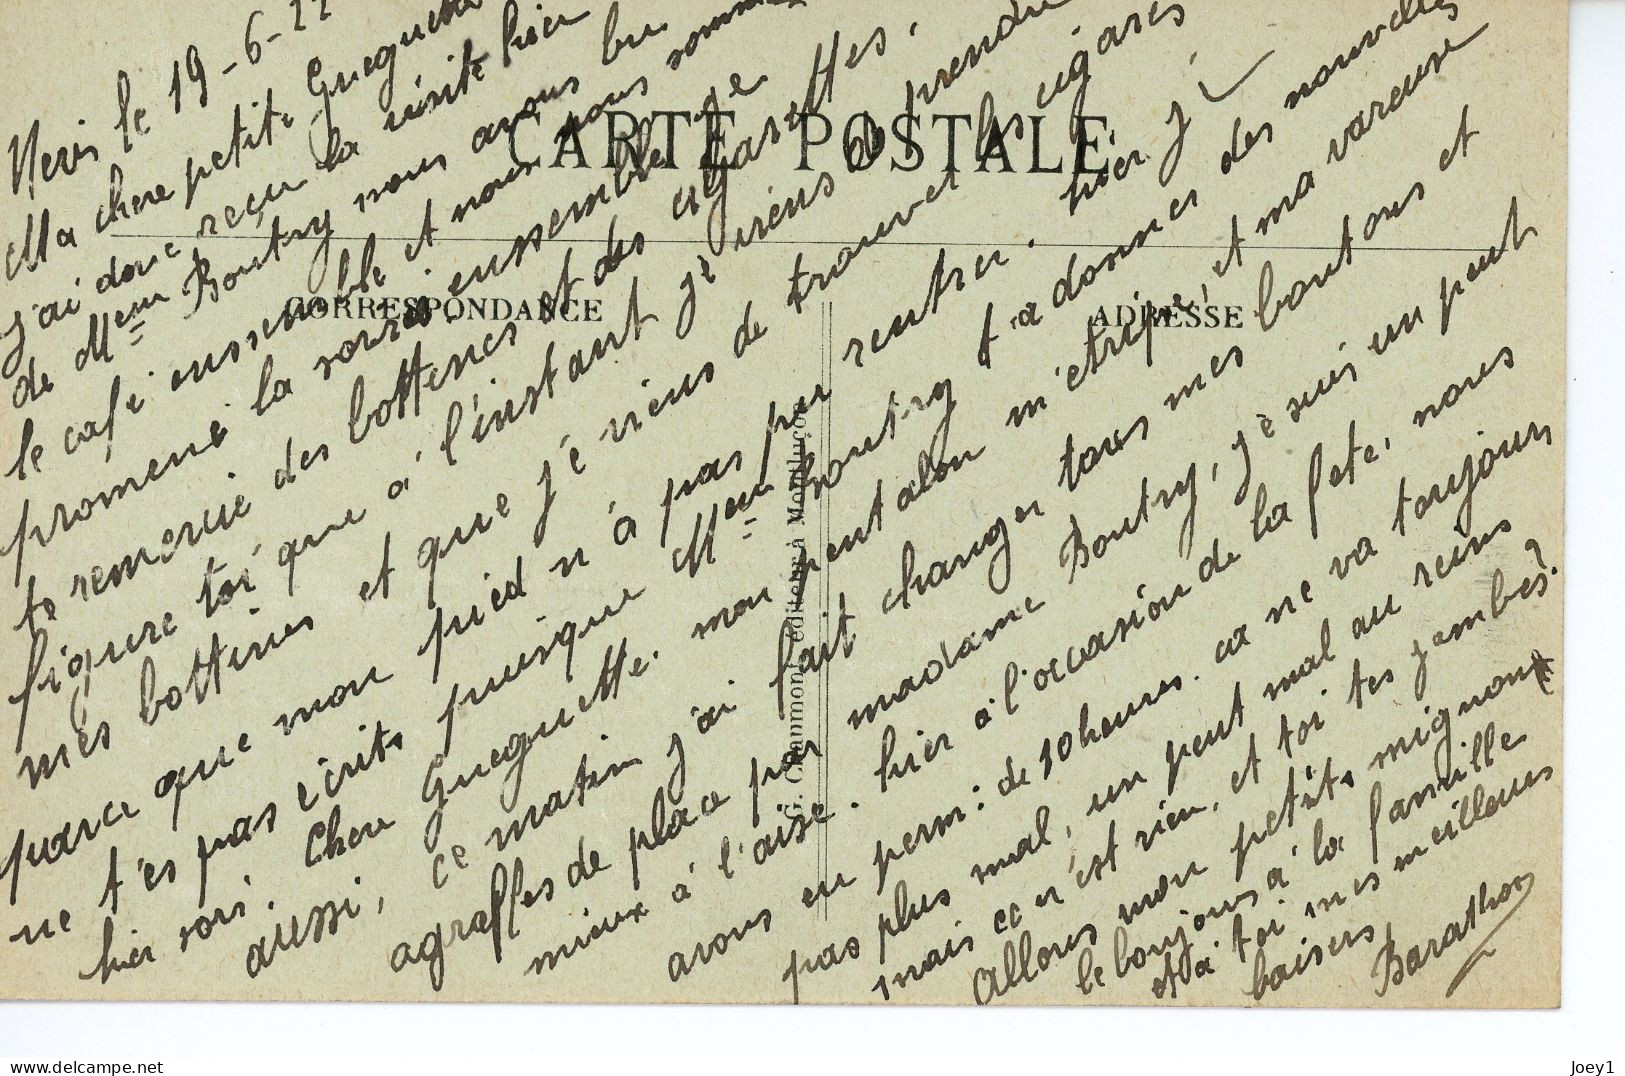 Neris le 19-6-22
Ma chere petite Gueguette
j'ai donc reçu la visite hier
de Meur Boutry nous avons bu
le café enssemble et nous nous sommes
promené la soiré enssemble. Je
te remercie des bottines et des cigarettes.
figure toi que à l'instant je viens de prendre
mes bottines et que je viens de trouver les cigares
parce que mon pied n'à pas pu rentrer. hier je
ne t'es pas écrits puisque Meur Boutry t'a donner des nouvelles
hier soir. Chere Gueguette. mon pentalon m'etripe, et ma vareuse
aussi, ce matin j'ai fait changer tous mes boutons et
agraffes de place par madame Boutry, je suis un peut
mieux à l'aise. hier à l'occasion de la fete, nous
avons eu perm: de 10 heures. ca ne va toujours
pas plus mal, un peut mal au reins
mais ce n'est rien, et toi tes jambes?
Allons mon petits mignoux
le bonjours à la famille
et à toi mes meilleurs
baisers,
Barathon
CARTE POSTALE
CORRESPONDANCE
ADRESSE
éditeur à Montluçon
Joey1